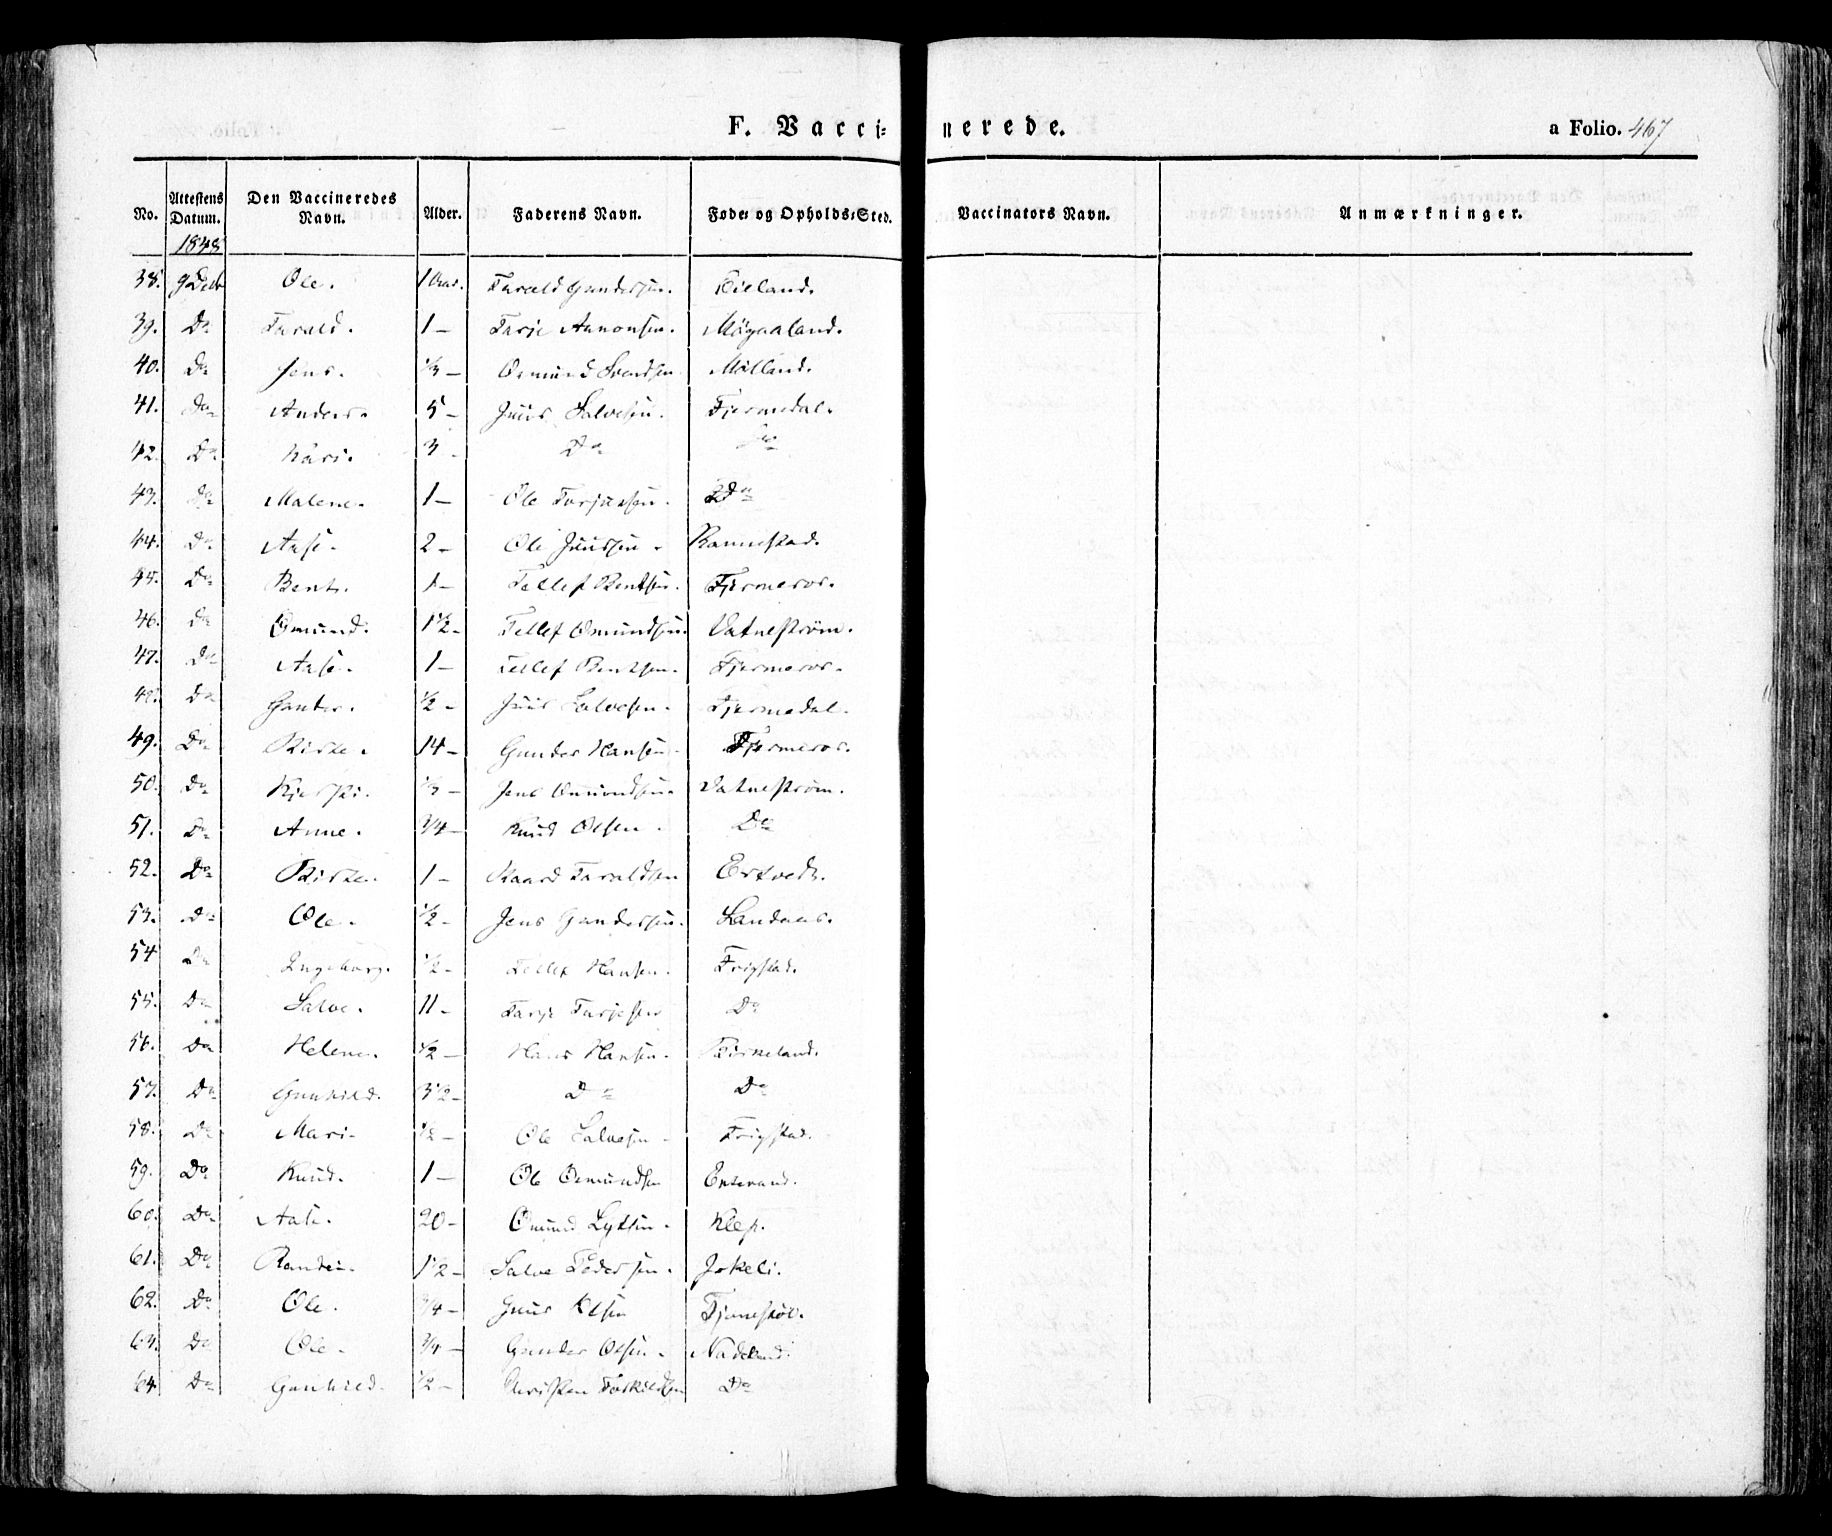 F. Vaccinerede.
a Folio. 467
No. | Attestens Datum. 1848 | Den Vaccineredes Navn. | Alder. | Faderens Navn. | Føde- og Opholds-Sted. | Vaccinators Navn. | Anmærkninger.
38. | 9 Decbr | Ole. | 1 Aar. | Tarald Gundersen. | Eieland.
39. | Do | Tarald. | 1 – | Tarje Aanonsen. | Møgaaland.
40. | Do | Jens. | 1/3 – | Osmund Svendsen | Mølland.
41. | Do | Anders. | 5 – | Juus Salvesen. | Fjermedal.
42. | Do | Kari. | 3 – | Do | Do
43. | Do | Malene. | 1 – | Ole Torjussen. | Do
44. | Do | Aase. | 2 – | Ole Juussen. | Rannestad.
45. | Do | Bent. | 1 – | Tellef Bentsen. | Fjermeros.
46. | Do | Omund. | 1 1/2 – | Tellef Omundsen. | Vatnestrøm.
47. | Do | Aase. | 1 – | Tellef Bentsen. | Fjermeros.
48. | Do | Gunder. | 1/2 – | Juus Salvesen. | Fjermedal.
49. | Do | Birte. | 14 – | Gunder Hansen | Fjermeros.
50. | Do | Kjersti. | 1/3 – | Jens Omundsen. | Vatnestrøm.
51. | Do | Anne. | 3/4 – | Knud Olsen. | Do
52. | Do | Birte. | 1 – | Kaard Taraldsen | Ertveds.
53. | Do | Ole. | 1/2 – | Jens Gundersen. | Landaas.
54 | Do | Ingeborg. | 1/2 – | Tellef Hansen. | Frigstad.
55. | Do | Salve. | 11 – | Tarje Tarjesen | Do
56. | Do | Helene. | 1/2 – | Hans Hansen. | Birkeland.
57. | Do | Gunhild. | 3 1/2 – | Do | Do
58. | Do | Mari. | 1/2 – | Ole Salvesen | Frigstad.
59. | Do | Knud. | 1 – | Ole Osmundsen
60. | Do | Aase. | 20 – | Omund | Klep.
61. | Do | 1 1/2 – | Salve Pedersen. | Jokeli.
62. | Do | Ole. | 3/4 – | Juus Olsen
63. | Do | Ole. | 3/4 – | Gunder Olsen. | Nadeland.
64 | Do | Gunhild. | 1/2 – | Christen Torkildsen | Do